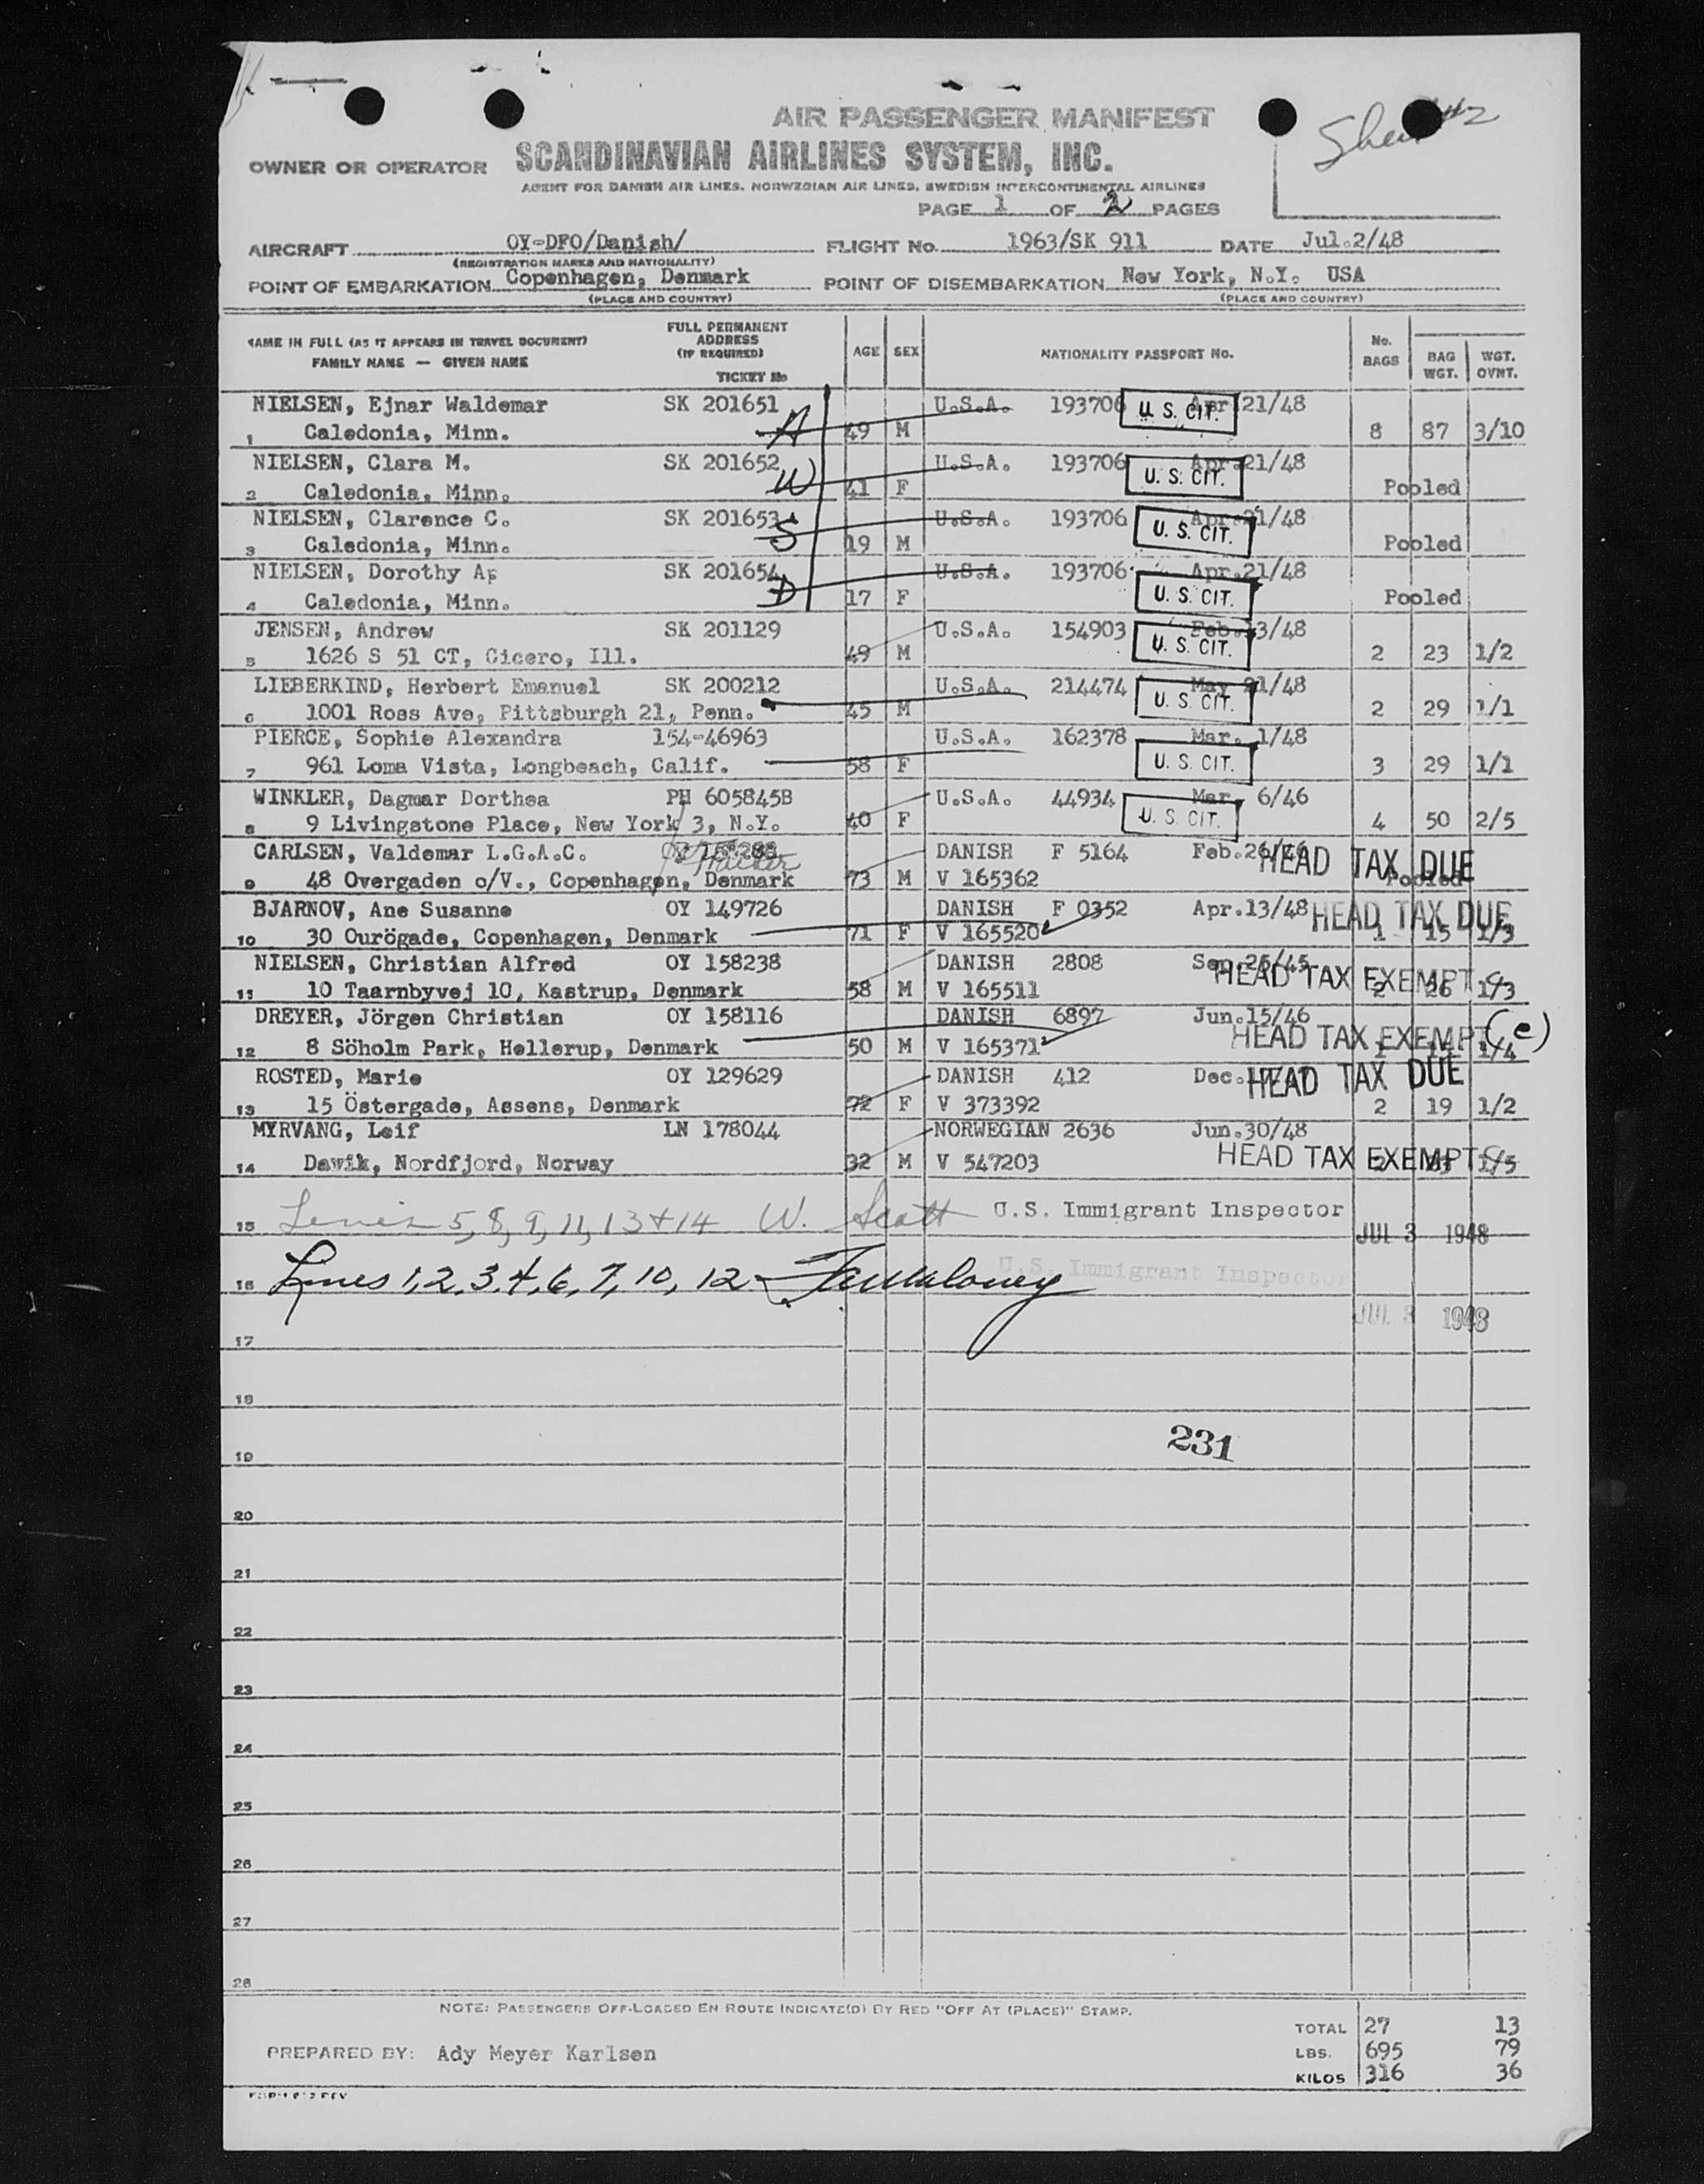 Sheet #2
AIR PASSENGER MANIFEST
OWNER OR OPERATOR SCANDINAVIAN AIRLINES SYSTEM, INC.
AGENT FOR DANISH AIR LINES, NORWEGIAN AIR LINES, SWEDISH INTERCONTINENTAL AIRLINES
PAGE 1 OF 2 PAGES
AIRCRAFT OY-DFO/Danish/ FLIGHT No. 1963/SK 911 DATE Jul.2/48
(REGISTRATION MARKS AND NATIONALITY)
POINT OF EMBARKATION Copenhagen, Denmark POINT OF DISEMBARKATION New York, N.Y. USA
(PLACE AND COUNTRY) (PLACE AND COUNTRY)
NAME IN FULL (AS IT APPEARS IN TRAVEL DOCUMENT) FAMILY NAME — GIVEN NAME
FULL PERMANENT ADDRESS (IF REQUIRED) TICKET No
AGE SEX NATIONALITY PASSPORT No. No. BAGS BAG WGT. WGT. OVNT.
NIELSEN, Ejnar Waldemar SK 201651 U.S.A. 193706 Apr 21/48 U. S. CIT.
1 Caledonia, Minn. A 49 M 8 87 3/10
NIELSEN, Clara M. SK 201652 U.S.A. 193706 Apr.21/48 U. S. CIT.
2 Caledonia, Minn. W 41 F Pooled
NIELSEN, Clarence C. SK 201653 U.S.A. 193706 Apr.21/48 U. S. CIT.
3 Caledonia, Minn. S 19 M Pooled
NIELSEN, Dorothy A. SK 201654 U.S.A. 193706 Apr.21/48
4 Caledonia, Minn. D 17 F U. S. CIT. Pooled
JENSEN, Andrew SK 201129 U.S.A. 154903 Feb.13/48
5 1626 S 51 CT, Cicero, Ill. 49 M U. S. CIT. 2 23 1/2
LIEBERKIND, Herbert Emanuel SK 200212 U.S.A. 214474 May 21/48
6 1001 Ross Ave, Pittsburgh 21, Penn. 45 M U. S. CIT. 2 29 1/1
PIERCE, Sophie Alexandra 154-46963 U.S.A. 162378 Mar. 1/48
7 961 Loma Vista, Longbeach, Calif. 58 F U. S. CIT. 3 29 1/1
WINKLER, Dagmar Dorthea PH 605845B U.S.A. 44934 Mar. 6/46
8 9 Livingstone Place, New York 3, N.Y. 40 F U. S. CIT. 4 50 2/5
CARLSEN, Valdemar L.G.A.C. DANISH F 5164 Feb.26/46 HEAD TAX DUE
9 48 Overgaden o/V., Copenhagen, Denmark 73 M V 165362 Pooled
BJARNOV, Ane Susanne OY 149726 DANISH F 0352 Apr.13/48 HEAD TAX DUE
10 30 Ourögade, Copenhagen, Denmark 71 F V 165520 1 15 1/3
NIELSEN, Christian Alfred OY 158238 DANISH 2808 Sep.26/45 HEAD TAX EXEMPT
11 10 Taarnbyvej 10, Kastrup, Denmark 58 M V 165511 2 26 1/3
DREYER, Jörgen Christian OY 158116 DANISH 6897 Jun.15/46 HEAD TAX EXEMPT (e)
12 8 Söholm Park, Hellerup, Denmark 50 M V 165371 1/4
ROSTED, Marie OY 129629 DANISH 412 Dec. HEAD TAX DUE
13 15 Östergade, Assens, Denmark 72 F V 373392 2 19 1/2
MYRVANG, Leif LN 178044 NORWEGIAN 2636 Jun.30/48
14 Dawik, Nordfjord, Norway 32 M V 547203 HEAD TAX EXEMPT 2 1/5
15 Lines 5, 8, 9, 11, 13 + 14 W. Scott U.S. Immigrant Inspector
JUL 3 1948
16 Lines 1, 2, 3, 4, 6, 7, 10, 12 U.S. Immigrant Inspector
JUL 3 1948
17
18
231
19
20
21
22
23
24
25
26
27
28
NOTE: PASSENGERS OFF-LOADED EN ROUTE INDICATE(D) BY RED "OFF AT (PLACE)" STAMP.
TOTAL 27 13
PREPARED BY: Ady Meyer Karlsen LBS. 695 79
KILOS 316 36